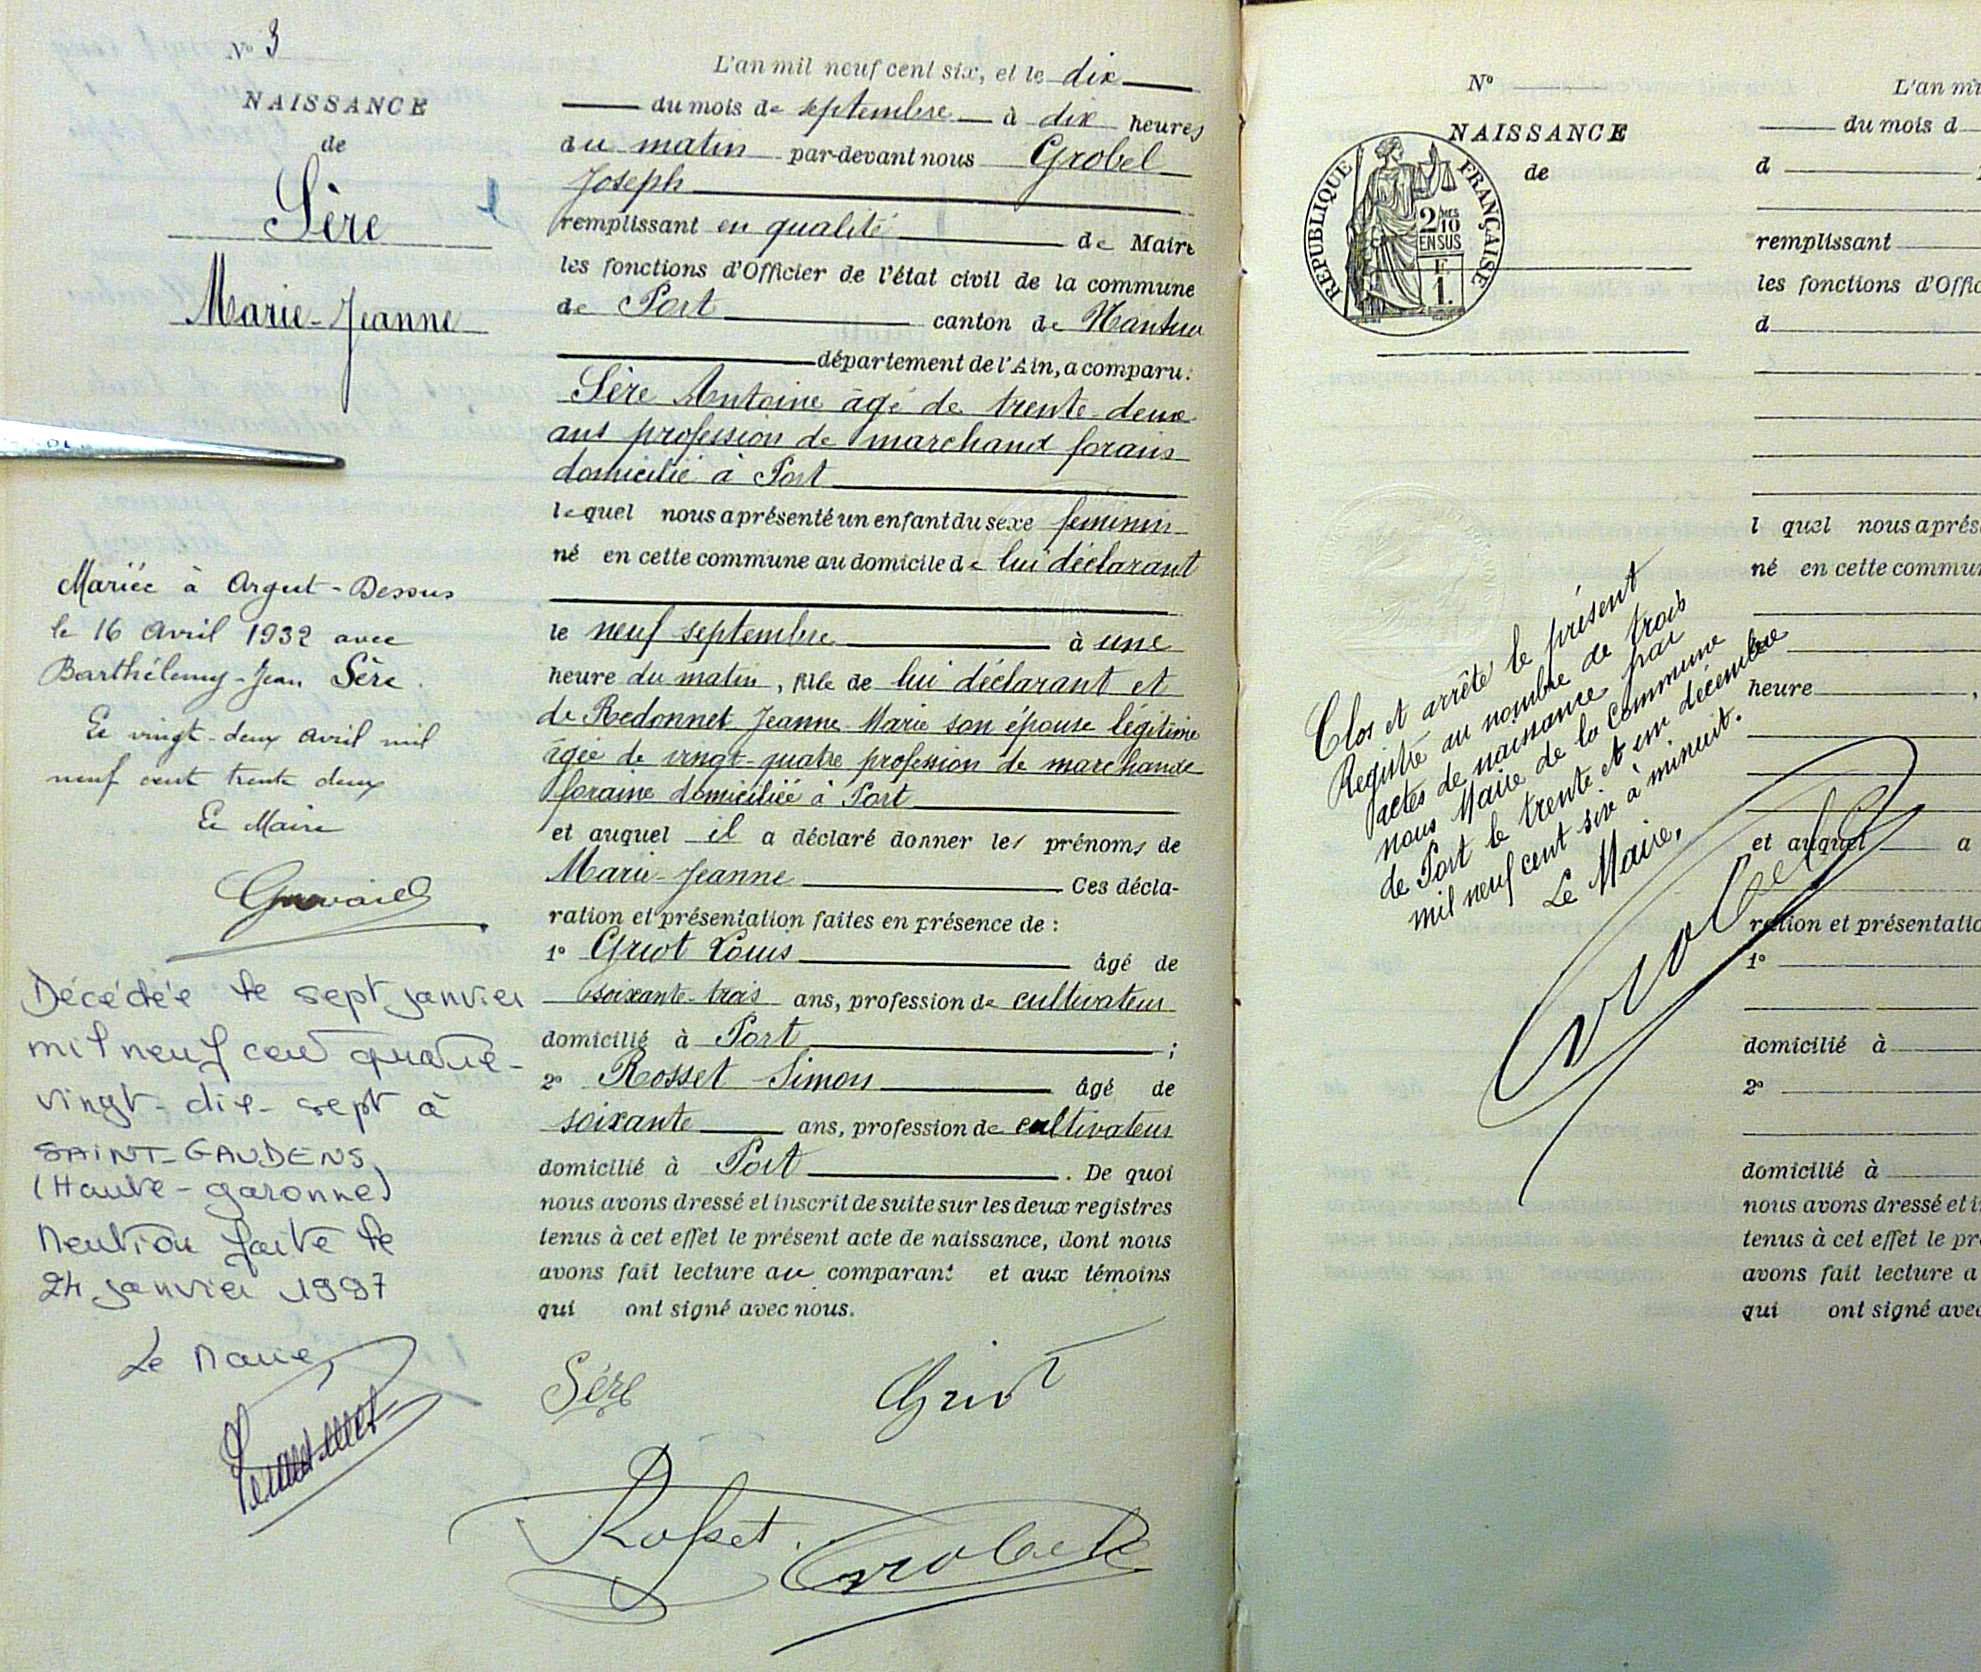 N° 3
NAISSANCE
de
Sère
Marie-Jeanne
Mariée à Argut-Dessus
le 16 Avril 1932 avec
Barthélemy-Jean Sère.
Le vingt-deux avril mil
neuf cent trente deux
Le Maire
Décédée le sept janvier
mil neuf cent quatre-
vingt-dix-sept à
SAINT-GAUDENS
(Haute-garonne)
Mention faite le
24 janvier 1997
Le Maire,
L'an mil neuf cent six, et le dix
du mois de septembre à dix heures
du matin par-devant nous Grobel
Joseph
remplissant en qualité de Maire
les fonctions d'Officier de l'état civil de la commune
de Port canton de Nantua
département de l'Ain, a comparu:
Sère Antoine âgé de trente-deux
ans profession de marchand forain
domicilié à Port
lequel nous a présenté un enfant du sexe féminin
né en cette commune au domicile de lui déclarant
le neuf septembre à une
heure du matin, fille de lui déclarant et
de Redonnet Jeanne Marie son épouse légitime
âgée de vingt-quatre profession de marchande
foraine domiciliée à Port
et auquel il a déclaré donner les prénoms de
Marie-Jeanne Ces décla-
ration et présentation faites en présence de :
1° Griot Louis âgé de
soixante-trois ans, profession de cultivateur
domicilié à Port ;
2° Rosset Simon âgé de
soixante ans, profession de cultivateur
domicilié à Port . De quoi
nous avons dressé et inscrit de suite sur les deux registres
tenus à cet effet le présent acte de naissance, dont nous
avons fait lecture au comparant et aux témoins
qui ont signé avec nous.
Sère Griot
Rosset Grobel
N°
NAISSANCE
de
REPUBLIQUE FRANÇAISE
2/10 MES
EN SUS
F.
1.
Clos et arrête le présent
Registre au nombre de trois
actes de naissance par
nous Maire de la Commune
de Port le trente et un décembre
mil neuf cent six à minuit.
Le Maire,
Grobel
L'an mi
du mois d
d
remplissant
les fonctions d'Offic
d
l quel nous a prés
né en cette commu
heure ,
et auquel a
ration et présentatio
1°
domicilié à
2°
domicilié à
nous avons dressé et i
tenus à cet effet le pr
avons fait lecture a
qui ont signé avec